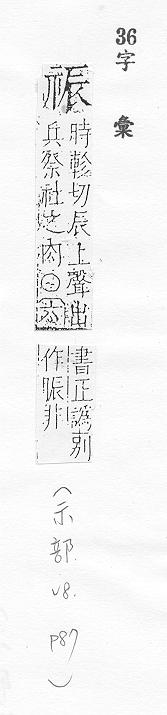 36字彙
祳
時軫切辰上聲出
兵祭社之肉○六
書正譌别
作脤非
(示部 v8. p87)